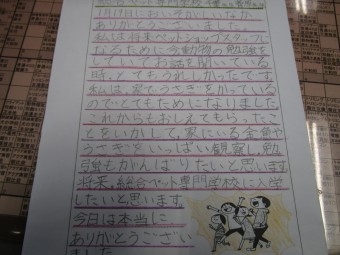 専門学校
1月17日におい そがしいなか
ありがとうございました。
私は将来ペットショップスタッフに
なるために今動物の勉強を
していてお話を聞いている
時、とてもうれしかったです。
私は、家でうさぎをかっている
のでとてもためになりました。
これからもおしえてもらったこ
とをいかして、家にいる金魚や
うさぎをいっぱい観察し勉
強もがんばりたいと思います。
将来、総合ペット専門学校に入学
したいと思います。
今日は本当に
ありがとうござい
ました